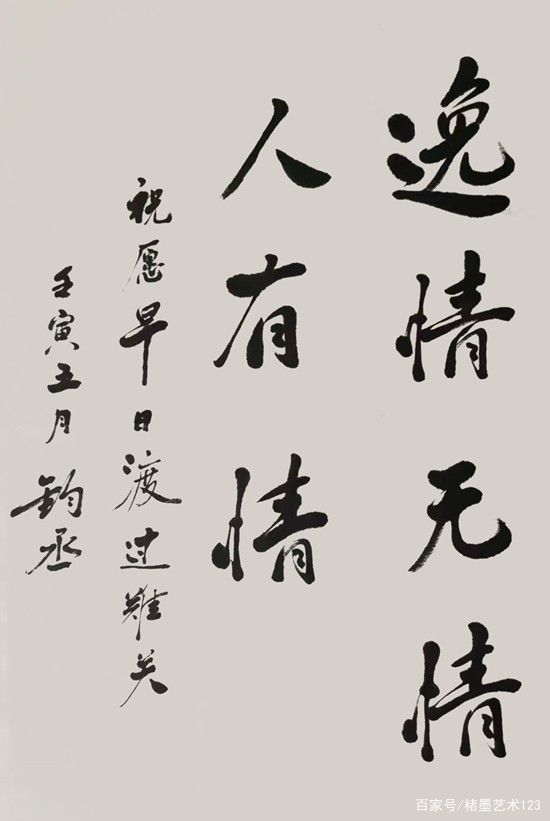 逸情无情
人有情
祝愿早日渡过难关
壬寅五月 钧丞
百家号/楮墨艺术123